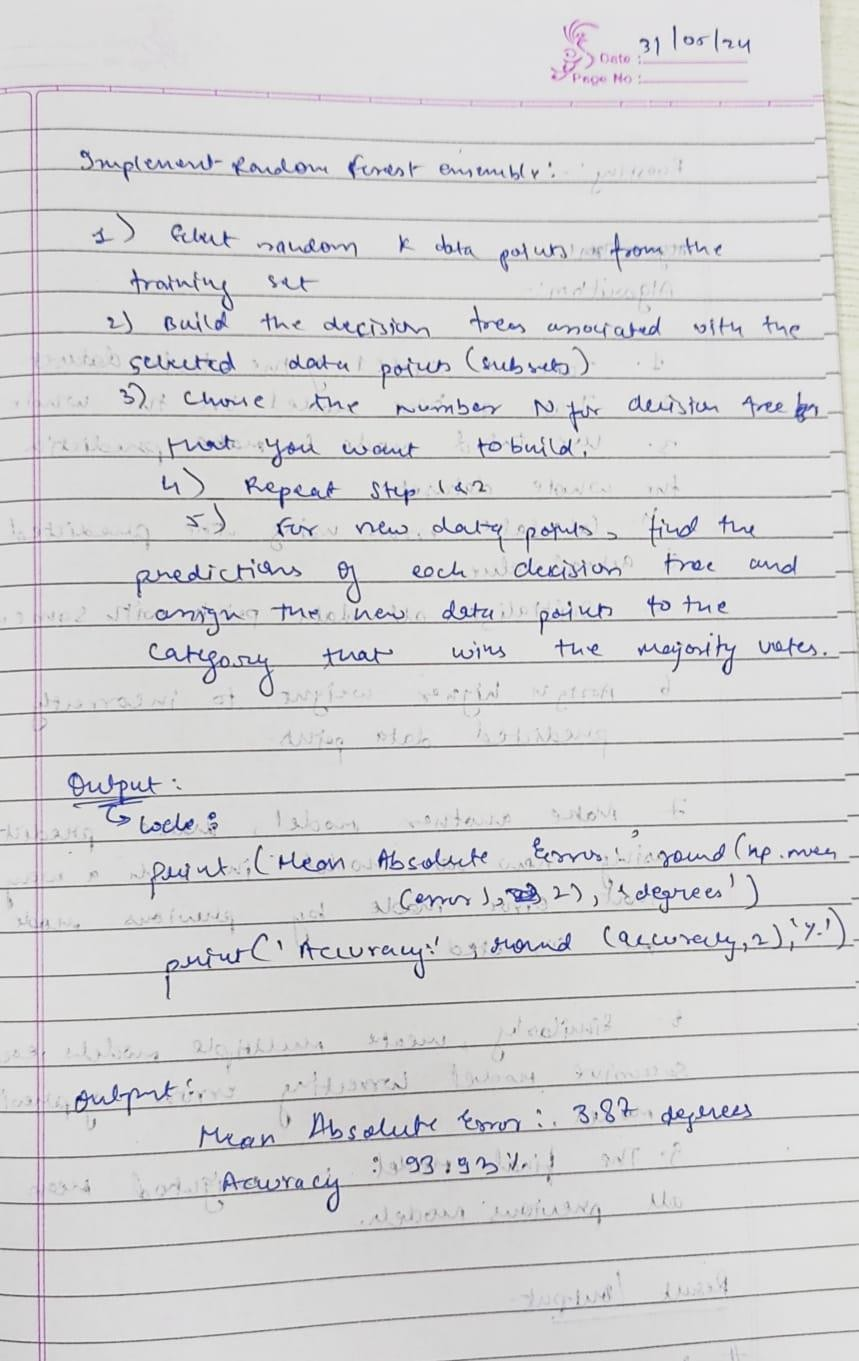 Date : 31/05/24
Page No :
Implement Random forest ensemble:
1) Select random K data points from the
training set
2) Build the decision trees associated with the
selected data points (subsets)
3) Choose the number N for decision tree
that you want to build.
4) Repeat Step 1 & 2
5) For new data points, find the
predictions of each decision tree and
assign the new data points to the
category that wins the majority votes.
Output :
↳ Code :
print (Mean Absolute Error: ', round (np.mean
(error), 2), 'degrees')
print (' Accuracy:' , round (accuracy, 2), '%.')
Output :
Mean Absolute Error : 3.87 degrees
Accuracy : 93.93 %.